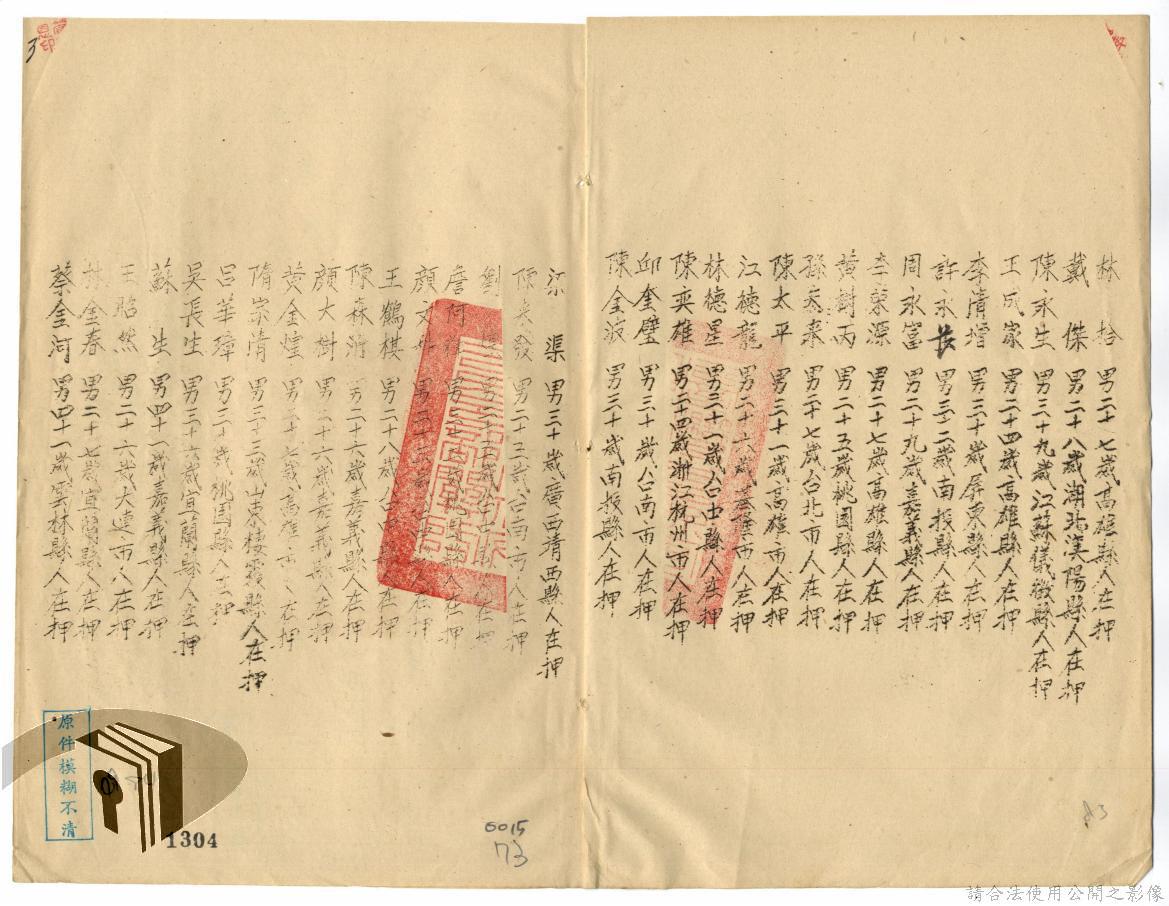 林 拾 男二十七歲高雄縣人在押
戴 傑 男二十八歲湖北漢陽縣人在押
陳永生 男三十九歲江蘇儀徵縣人在押
王成家 男二十四歲高雄縣人在押
李清增 男三十歲屏東縣人在押
許永長 男三二歲南投縣人在押
周永富 男二十九歲嘉義縣人在押
李榮源 男二十七歲高雄縣人在押
黃樹丙 男二十五歲桃園縣人在押
孫 男二十七歲台北市人在押
陳太平 男三十一歲高雄市人在押
江德龍 男二十六歲基隆市人在押
林德星 男三十一歲台中縣人在押
陳奕雄 男二十四歲浙江杭州市人在押
邱奎璧 男三十歲台南市人在押
陳金波 男三十歲南投縣人在押
梁 渠 男三十歲廣西靖西縣人在押
陳來發 男二十三歲台南市人在押
劉 男二十 歲台 縣 在押
詹阿 男三十 歲桃園縣人在押
顏文 男二十 歲 人在押
王鶴棋 男二十八歲台 人在押
陳森 男二十六歲嘉義縣人在押
顏大樹 男三十六歲嘉義縣人在押
黃金煌 男二十七歲高雄市人在押
隋宗清 男三十三歲山東棲霞縣人在押
呂華璋 男三十歲桃園縣人在押
吳長生 男三十六歲宜蘭縣人在押
蘇 生 男四十一歲嘉義縣人在押
王昭然 男二十六歲大連市人在押
林金春 男二十七歲宜蘭縣人在押
蔡金河 男四十一歲雲林縣人在押
原件模糊不清
1304
0015
73
83
3
請合法使用公開之影像